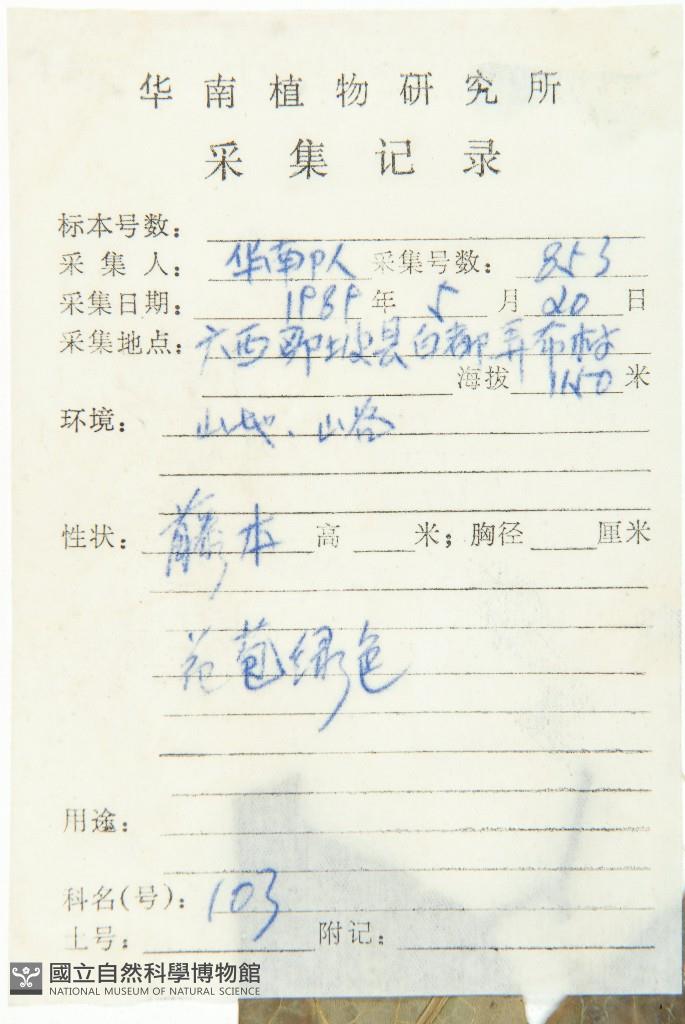 华南植物研究所
采集记录
标本号数：
采集人： 华南队 采集号数： 853
采集日期： 1989 年 5 月 20 日
采集地点： 广西那坡县百都弄布村
海拔 1150 米
环境： 山地、山谷
性状： 藤本 高 米；胸径 厘米
花苞绿色
用途：
科名(号)： 103
土号： 附记：
國立自然科學博物館
NATIONAL MUSEUM OF NATURAL SCIENCE